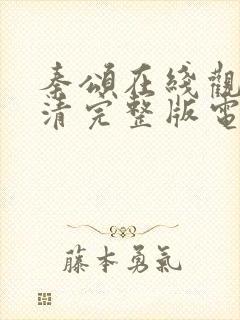 秦頌在綫觀
清完整版電
藤本勇氣